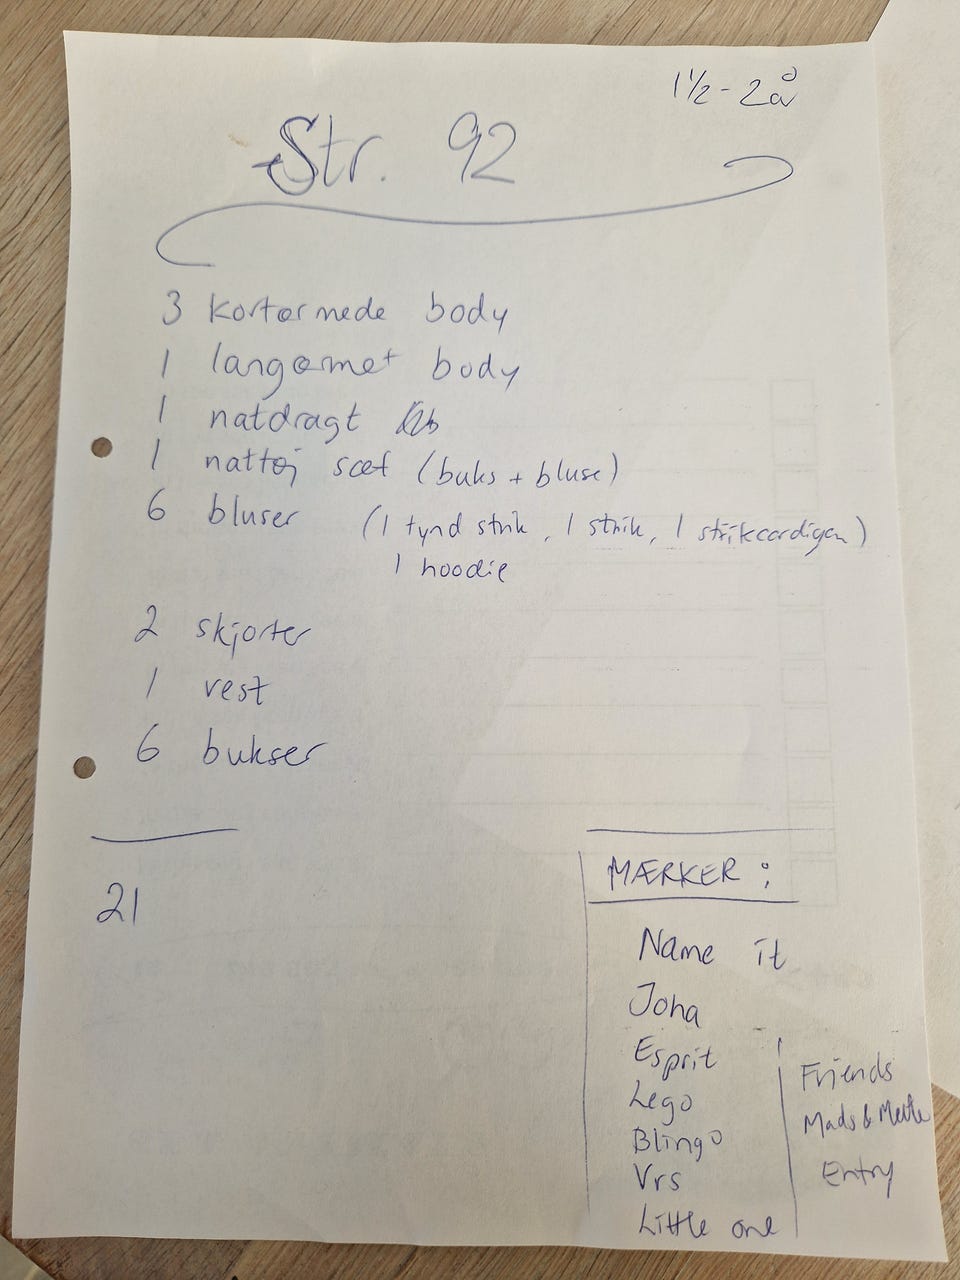 1 1/2 - 2 å
Str. 92
3 kortærmede body
1 langærmet body
1 natdragt
1 nattøj sæt (buks + bluse)
6 bluser (1 tynd strik, 1 strik, 1 strikcardigan)
1 hoodie
2 skjorter
1 vest
6 bukser
21
MÆRKER:
Name it
Joha
Esprit
Lego
Blingo
Vrs
Little one
Friends
Mads & Mette
Entry